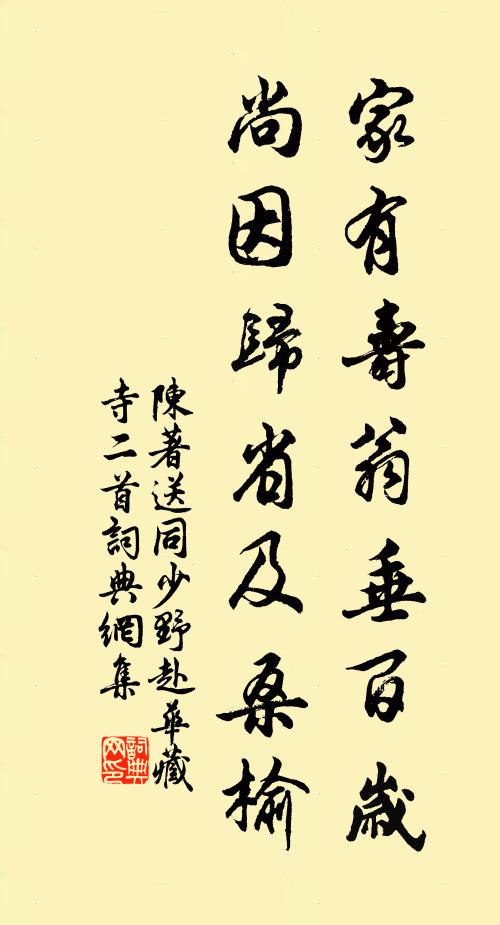 家有壽翁垂百歲
尚因歸省及桑榆
陳著送同少野赴華藏
寺二首詞典網集
詞典網印